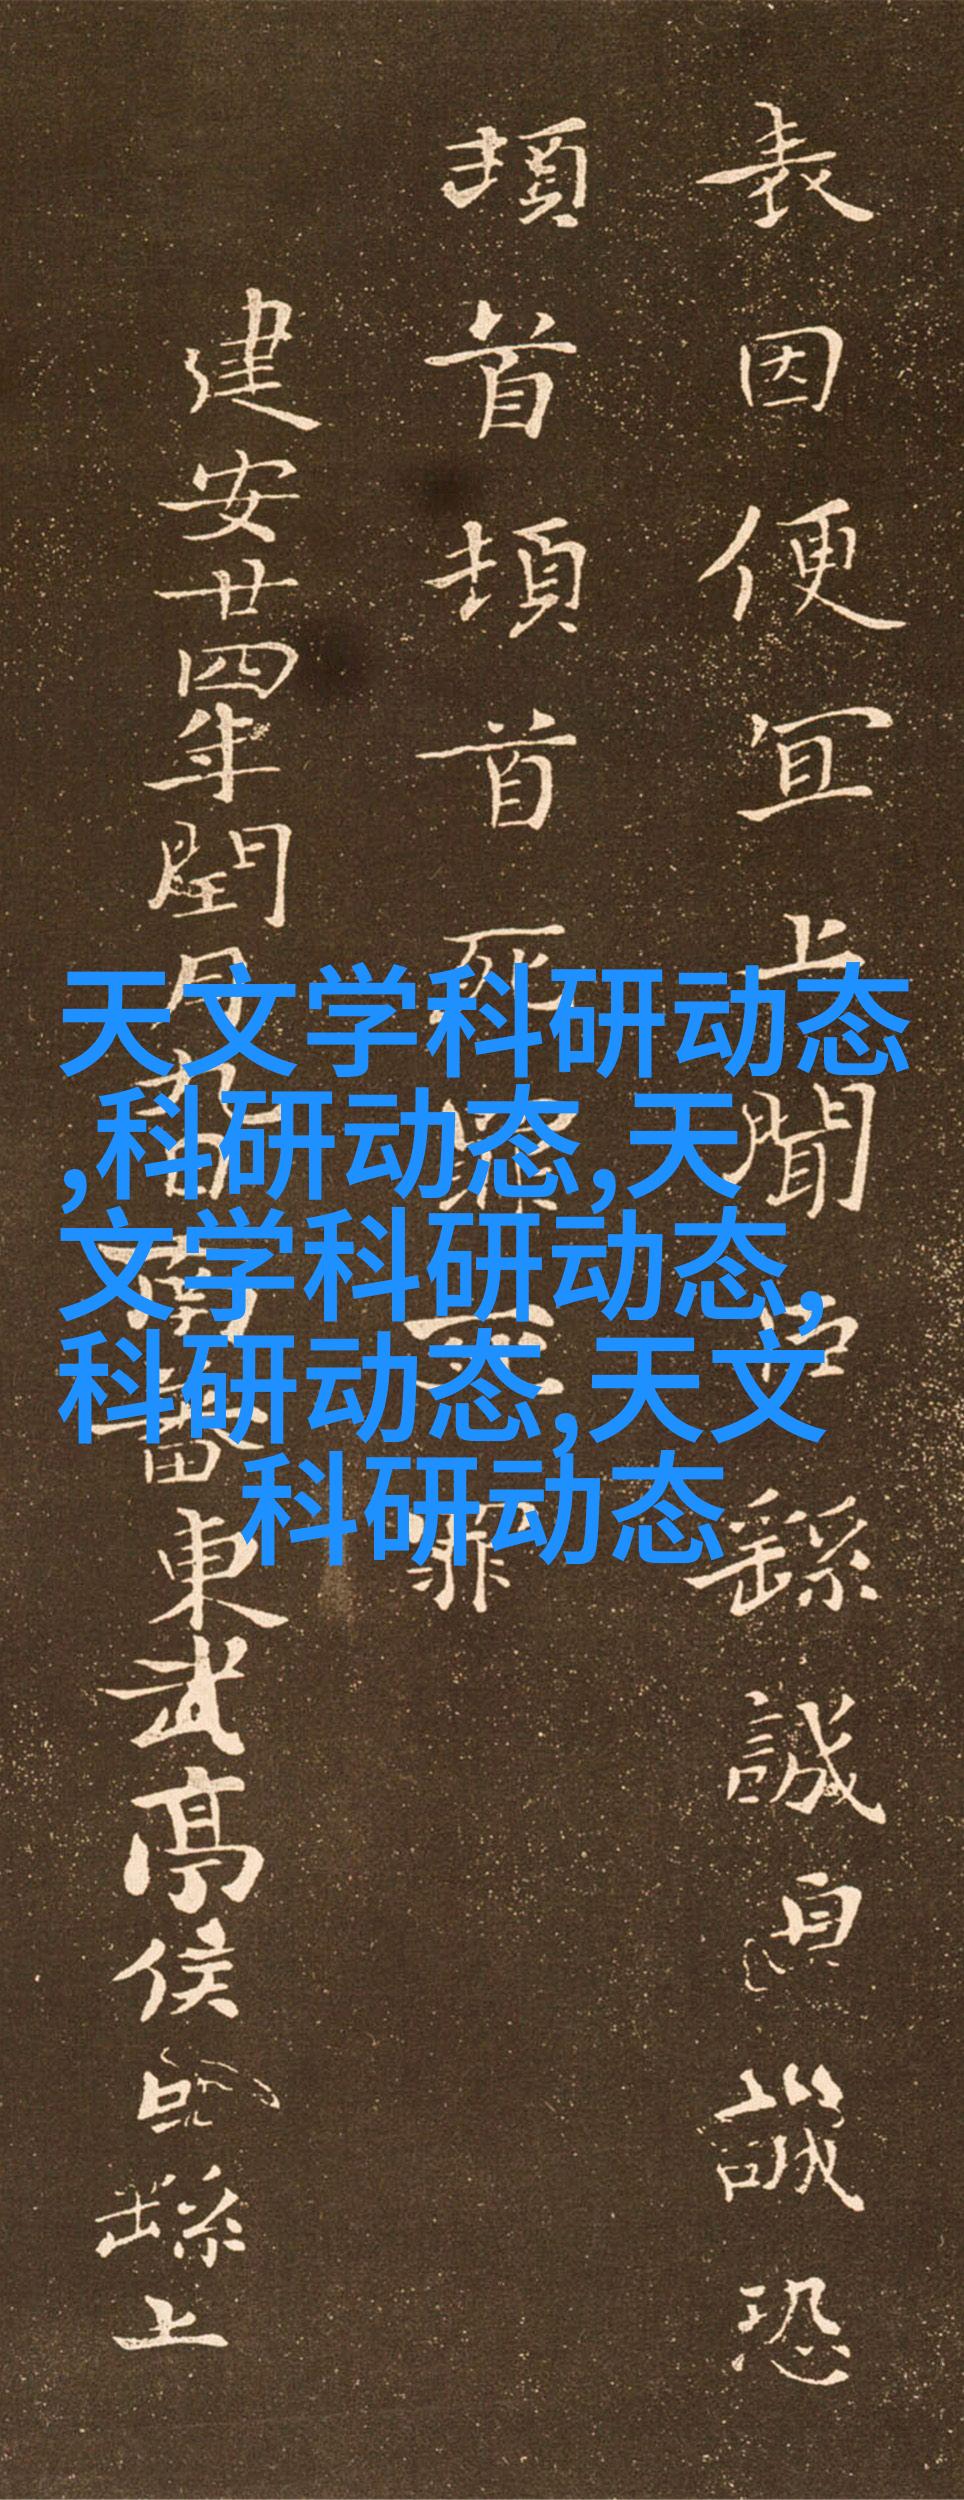 表因便宜上聞臣繇誠誠恐
頓首頓首死罪死罪
建安廿四年閏月九日南蕃東武亭侯臣繇上
天文学科研动态
,科研动态,天
文学科研动态,
科研动态,天文
科研动态